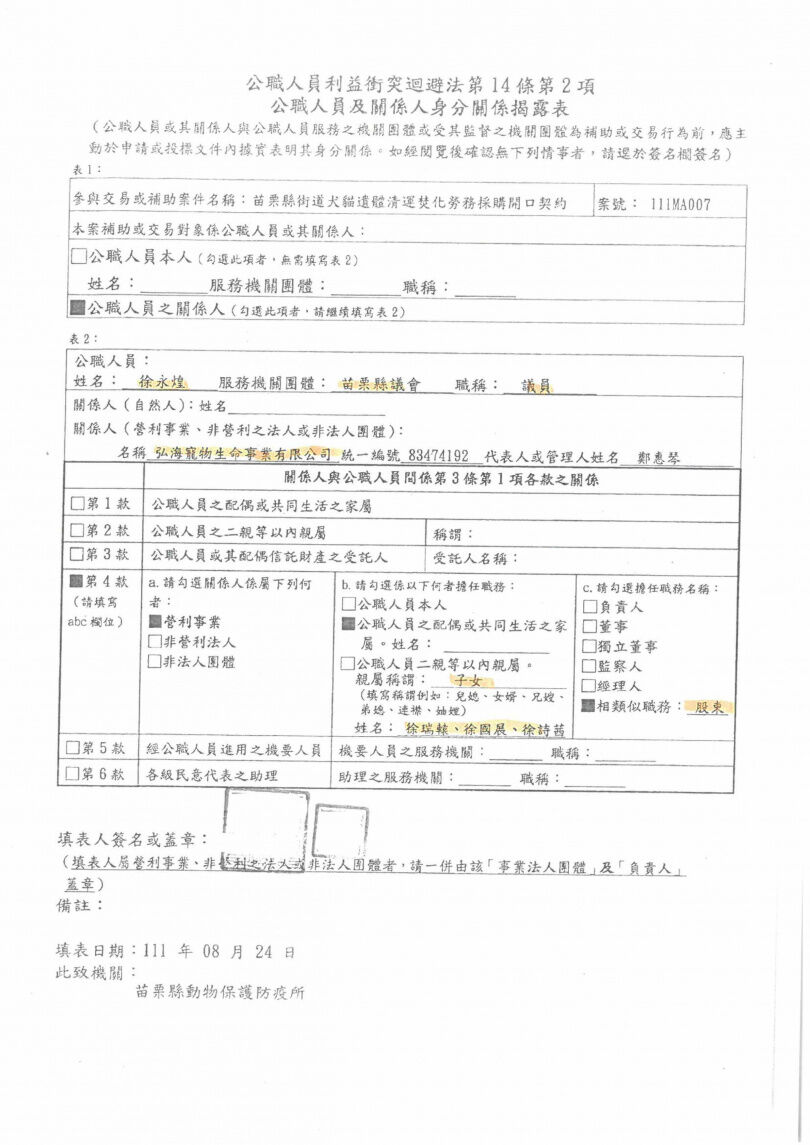 公職人員利益衝突迴避法第14條第2項
公職人員及關係人身分關係揭露表
(公職人員或其關係人與公職人員服務之機關團體或受其監督之機關團體為補助或交易行為前,應主
動於申請或投標文件內據實表明其身分關係。如經閱覽後確認無下列情事者,請逕於簽名欄簽名)
表1:
參與交易或補助案件名稱:苗栗縣街道犬貓遺體清運焚化勞務採購開口契約 案號: 111MA007
本案補助或交易對象係公職人員或其關係人:
□公職人員本人(勾選此項者,無需填寫表2)
姓名:______服務機關團體:______職稱:______
■公職人員之關係人(勾選此項者,請繼續填寫表2)
表2:
公職人員:
姓名: 徐永煌 服務機關團體: 苗栗縣議會 職稱: 議員
關係人(自然人):姓名______
關係人(營利事業、非營利之法人或非法人團體):
名稱 弘海寵物生命事業有限公司 統一編號 83474192 代表人或管理人姓名 鄭惠琴
關係人與公職人員間係第3條第1項各款之關係
□第1款 公職人員之配偶或共同生活之家屬
□第2款 公職人員之二親等以內親屬 稱謂:
□第3款 公職人員或其配偶信託財產之受託人 受託人名稱:
■第4款
(請填寫
abc欄位)
a.請勾選關係人係屬下列何
者:
■營利事業
□非營利法人
□非法人團體
b.請勾選係以下何者擔任職務:
□公職人員本人
■公職人員之配偶或共同生活之家
屬。姓名:______
□公職人員二親等以內親屬。
親屬稱謂: 子女
(填寫稱謂例如:兒媳、女婿、兄嫂、
弟媳、連襟、妯娌)
姓名: 徐瑞轅、徐國展、徐詩茜
c.請勾選擔任職務名稱:
□負責人
□董事
□獨立董事
□監察人
□經理人
■相類似職務: 股東
□第5款 經公職人員進用之機要人員 機要人員之服務機關:______ 職稱:______
□第6款 各級民意代表之助理 助理之服務機關:______ 職稱:______
填表人簽名或蓋章:
(填表人屬營利事業、非營利之法人或非法人團體者,請一併由該「事業法人團體」及「負責人」
蓋章)
備註:
填表日期:111 年 08 月 24 日
此致機關:
苗栗縣動物保護防疫所